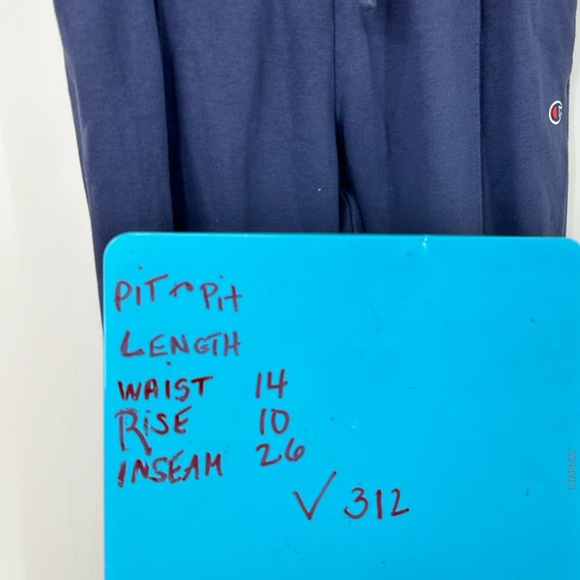 PiT ~ Pit
LENGTH
WAIST 14
RiSE 10
INSEAM 26
√ 312